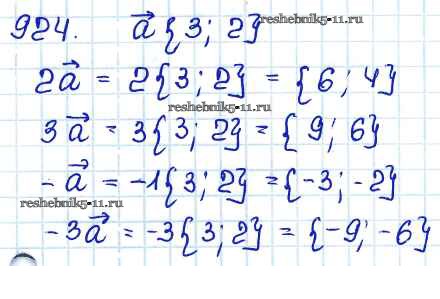 924. a⃗ {3; 2}
reshebnik5-11.ru
2a⃗ = 2{3; 2} = {6; 4}
reshebnik5-11.ru
3a⃗ = 3{3; 2} = {9; 6}
-a⃗ = -1{3; 2} = {-3; -2}
reshebnik5-11.ru
-3a⃗ = -3{3; 2} = {-9; -6}